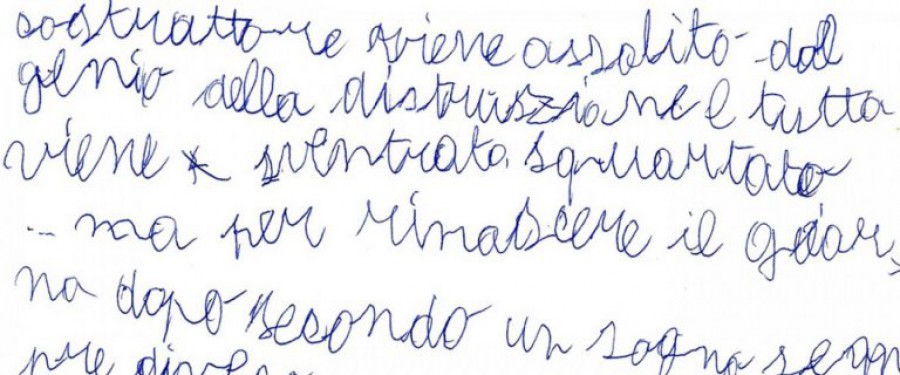 costruttore viene assalito dal
genio della distruszione e tutto
viene sventrato, squartato
... ma per rinascere il gior
no dopo secondo un sogno sem
pre diver